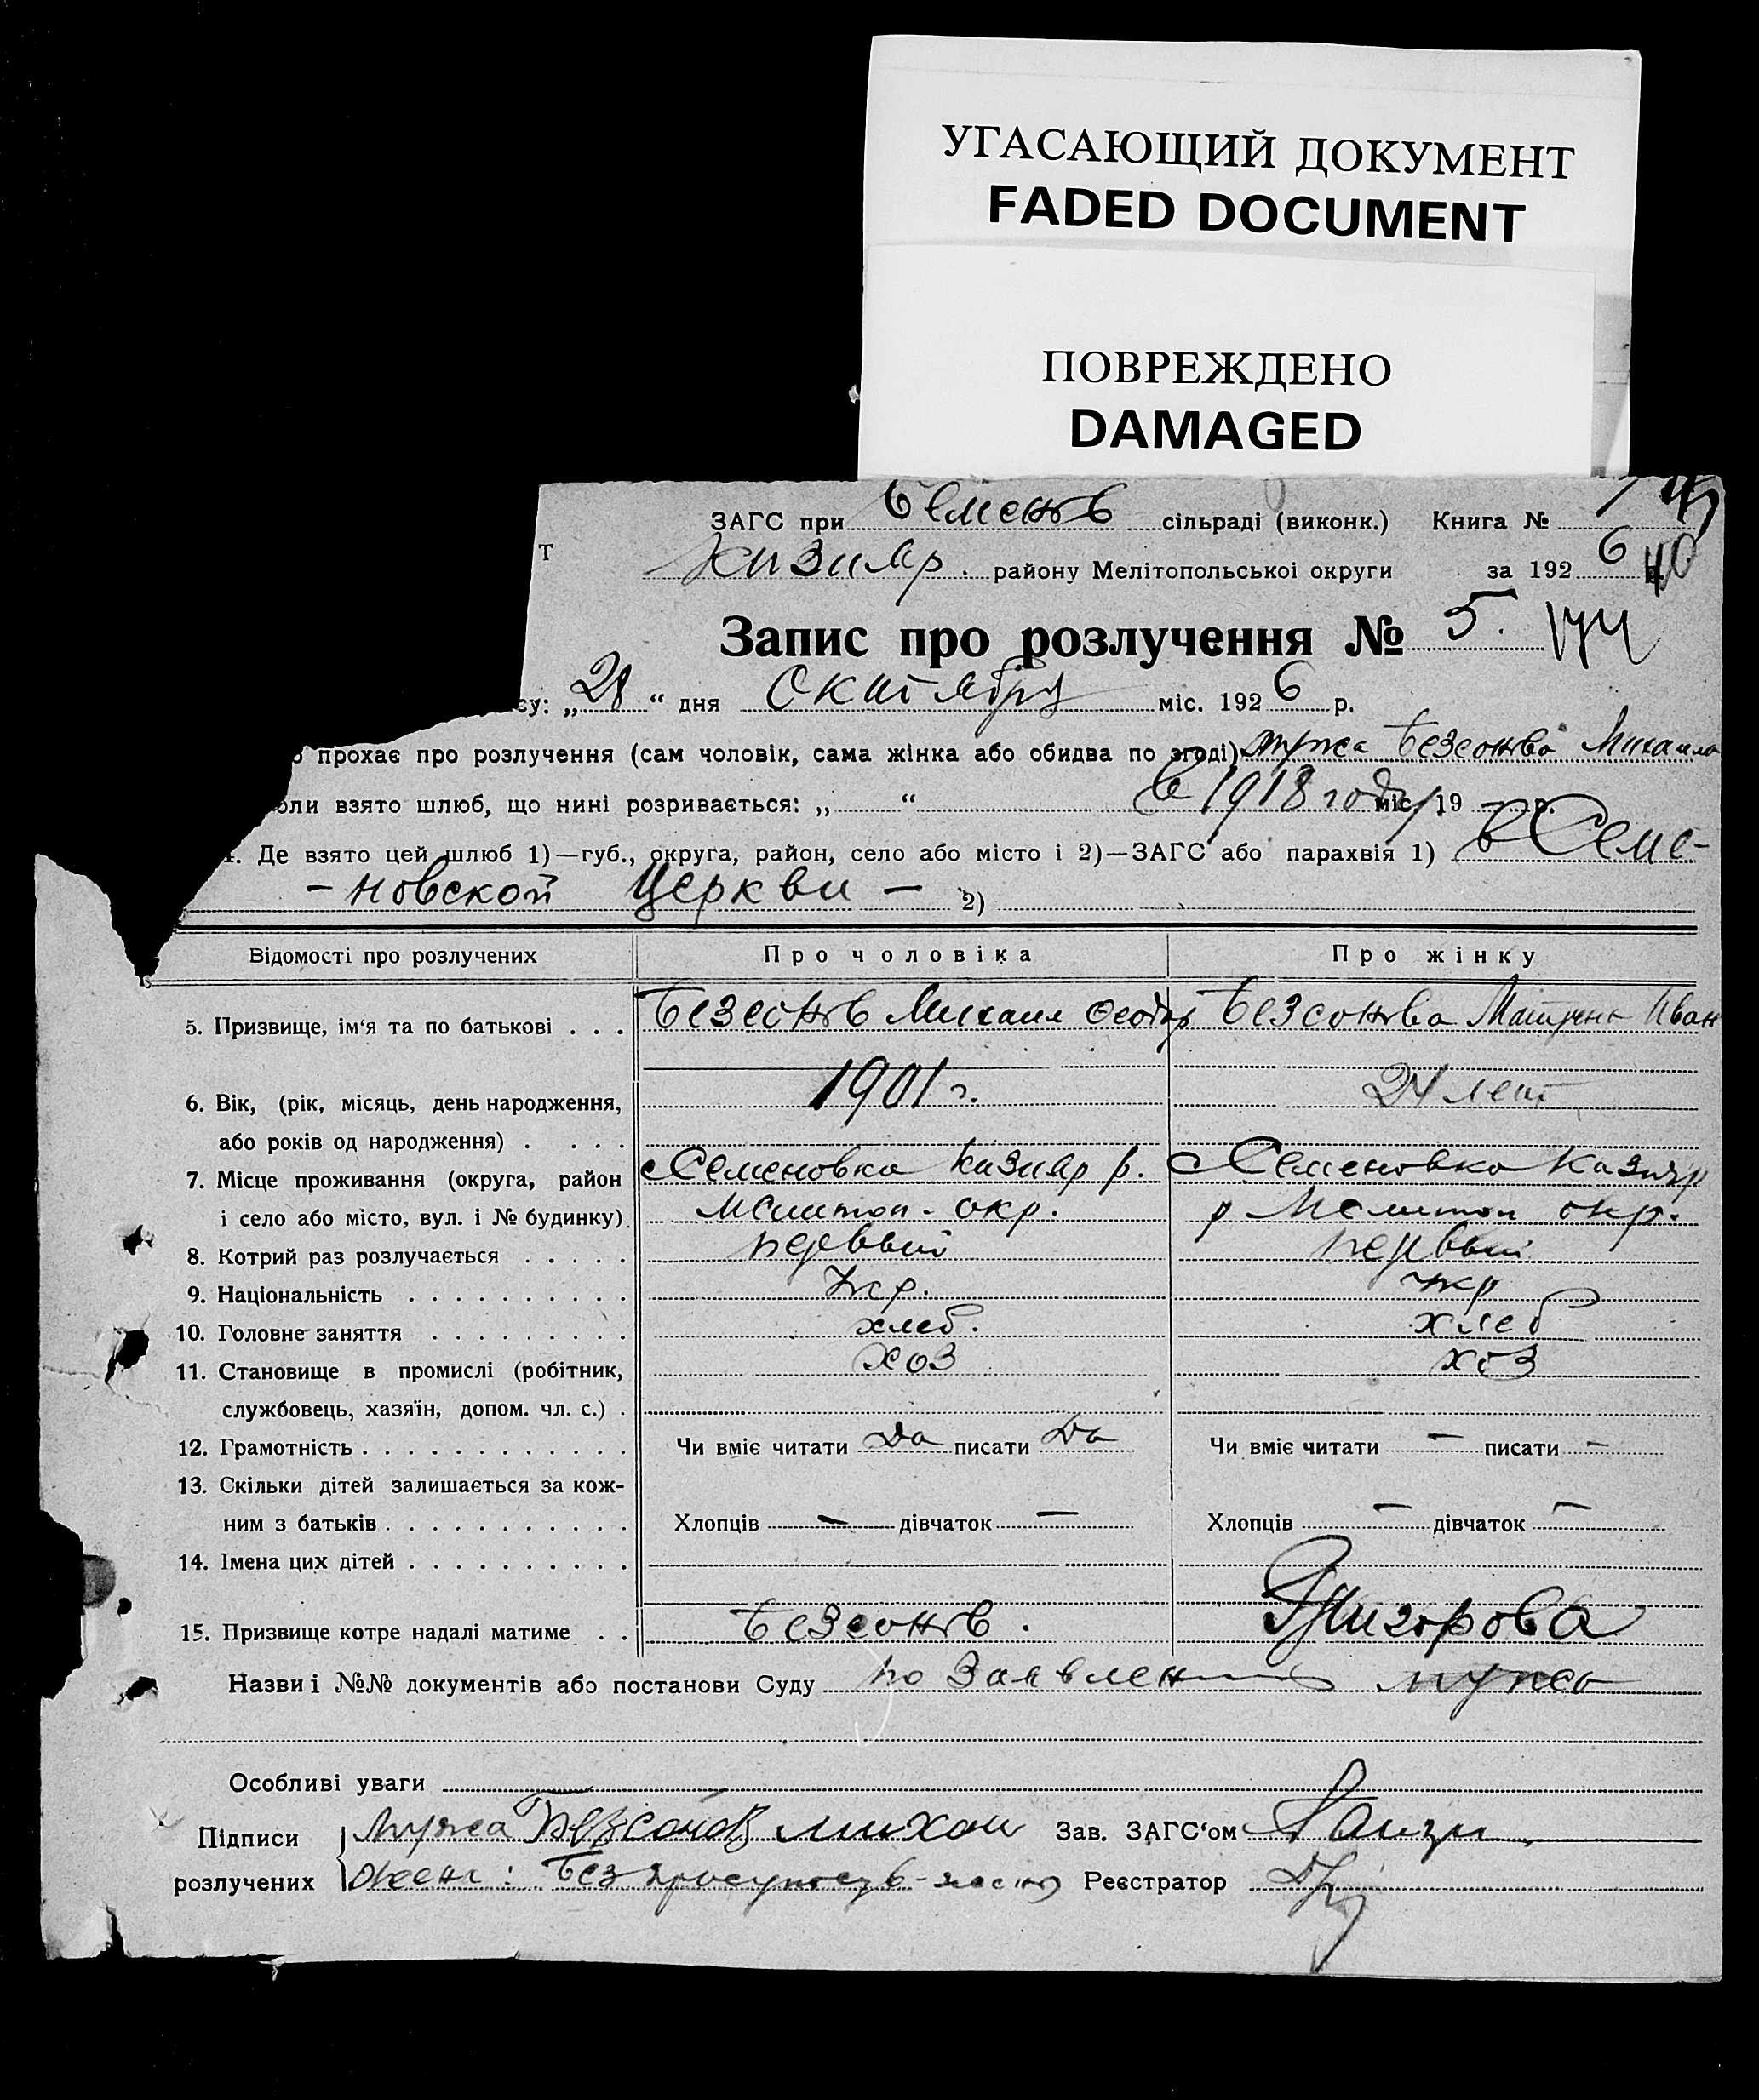 УГАСАЮЩИЙ ДОКУМЕНТ
FADED DOCUMENT
ПОВРЕЖДЕНО
DAMAGED
ЗАГС при Семенов сільраді (виконк.) Книга №
т Кизияр. району Мелітопольської округи за 1926
Запис про розлучення № 5.
су: „28“ дня Октября міс. 1926 р.
о прохає про розлучення (сам чоловік, сама жінка або обидва по згоді) мужа Безсонова Михаила
оли взято шлюб, що нині розривається: „ “ в 1918 году міс. 19 — р.
4. Де взято цей шлюб 1)—губ., округа, район, село або місто і 2)—ЗАГС або парахвія 1) в Семе-
- новской Церкви — 2)
Відомості про розлучених Про чоловіка Про жінку
5. Призвище, ім‘я та по батькові . . . Безсонов Михаил Феодор Безсонова Матрена Иван
6. Вік, (рік, місяць, день народження, 1901 г. 24 лет
або років од народження) . . . .
7. Місце проживання (округа, район Семеновка Кизияр р. Семеновка Кизияр
і село або місто, вул. і № будинку) Мелитоп. окр. р Мелитоп окр.
8. Котрий раз розлучається . . . . . первый первый
9. Національність . . . . . . . . . . укр. укр
10. Головне заняття . . . . . . . . . хлеб. хлеб
11. Становище в промислі (робітник, хоз хоз
службовець, хазяїн, допом. чл. с.) .
12. Грамотність . . . . . . . . . . . . Чи вміє читати Да писати Да Чи вміє читати — писати —
13. Скільки дітей залишається за кож-
ним з батьків . . . . . . . . . . . Хлопців — дівчаток — Хлопців — дівчаток —
14. Імена цих дітей . . . . . . . . . .
15. Призвище котре надалі матиме . . Безсонов. Григорова
Назви і №№ документів або постанови Суду по заявлению мужа
Особливі уваги
Підписи мужа Безсонов михаи Зав. ЗАГС‘ом
розлучених жены: Без Реєстратор